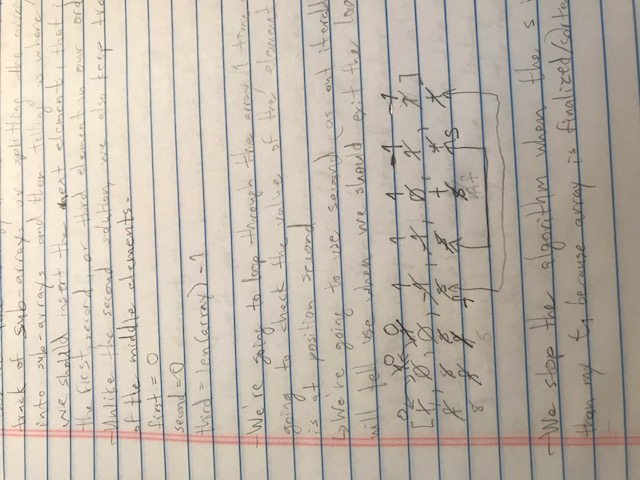 track of sub-array. or splitting the array
into sub-arrays and then telling us where
we should insert the next element, that i
the first, second, or third element in our ord
-Unlike the second solution, we also keep tra
of the middle elements.
first = 0
second = 0
third = len(array) - 1
-We're going to loop through the array 1 time
going to check the value of the element
is at position second
↳We're going to use second as out
will tell use when we should exit the loo
0 0 0 1 1 1 -1 -1
[1, 0, 0, -1, -1, 0, 1, 1]
-We stop the algorithm when the s i
than my t, because array is finalized/sorte